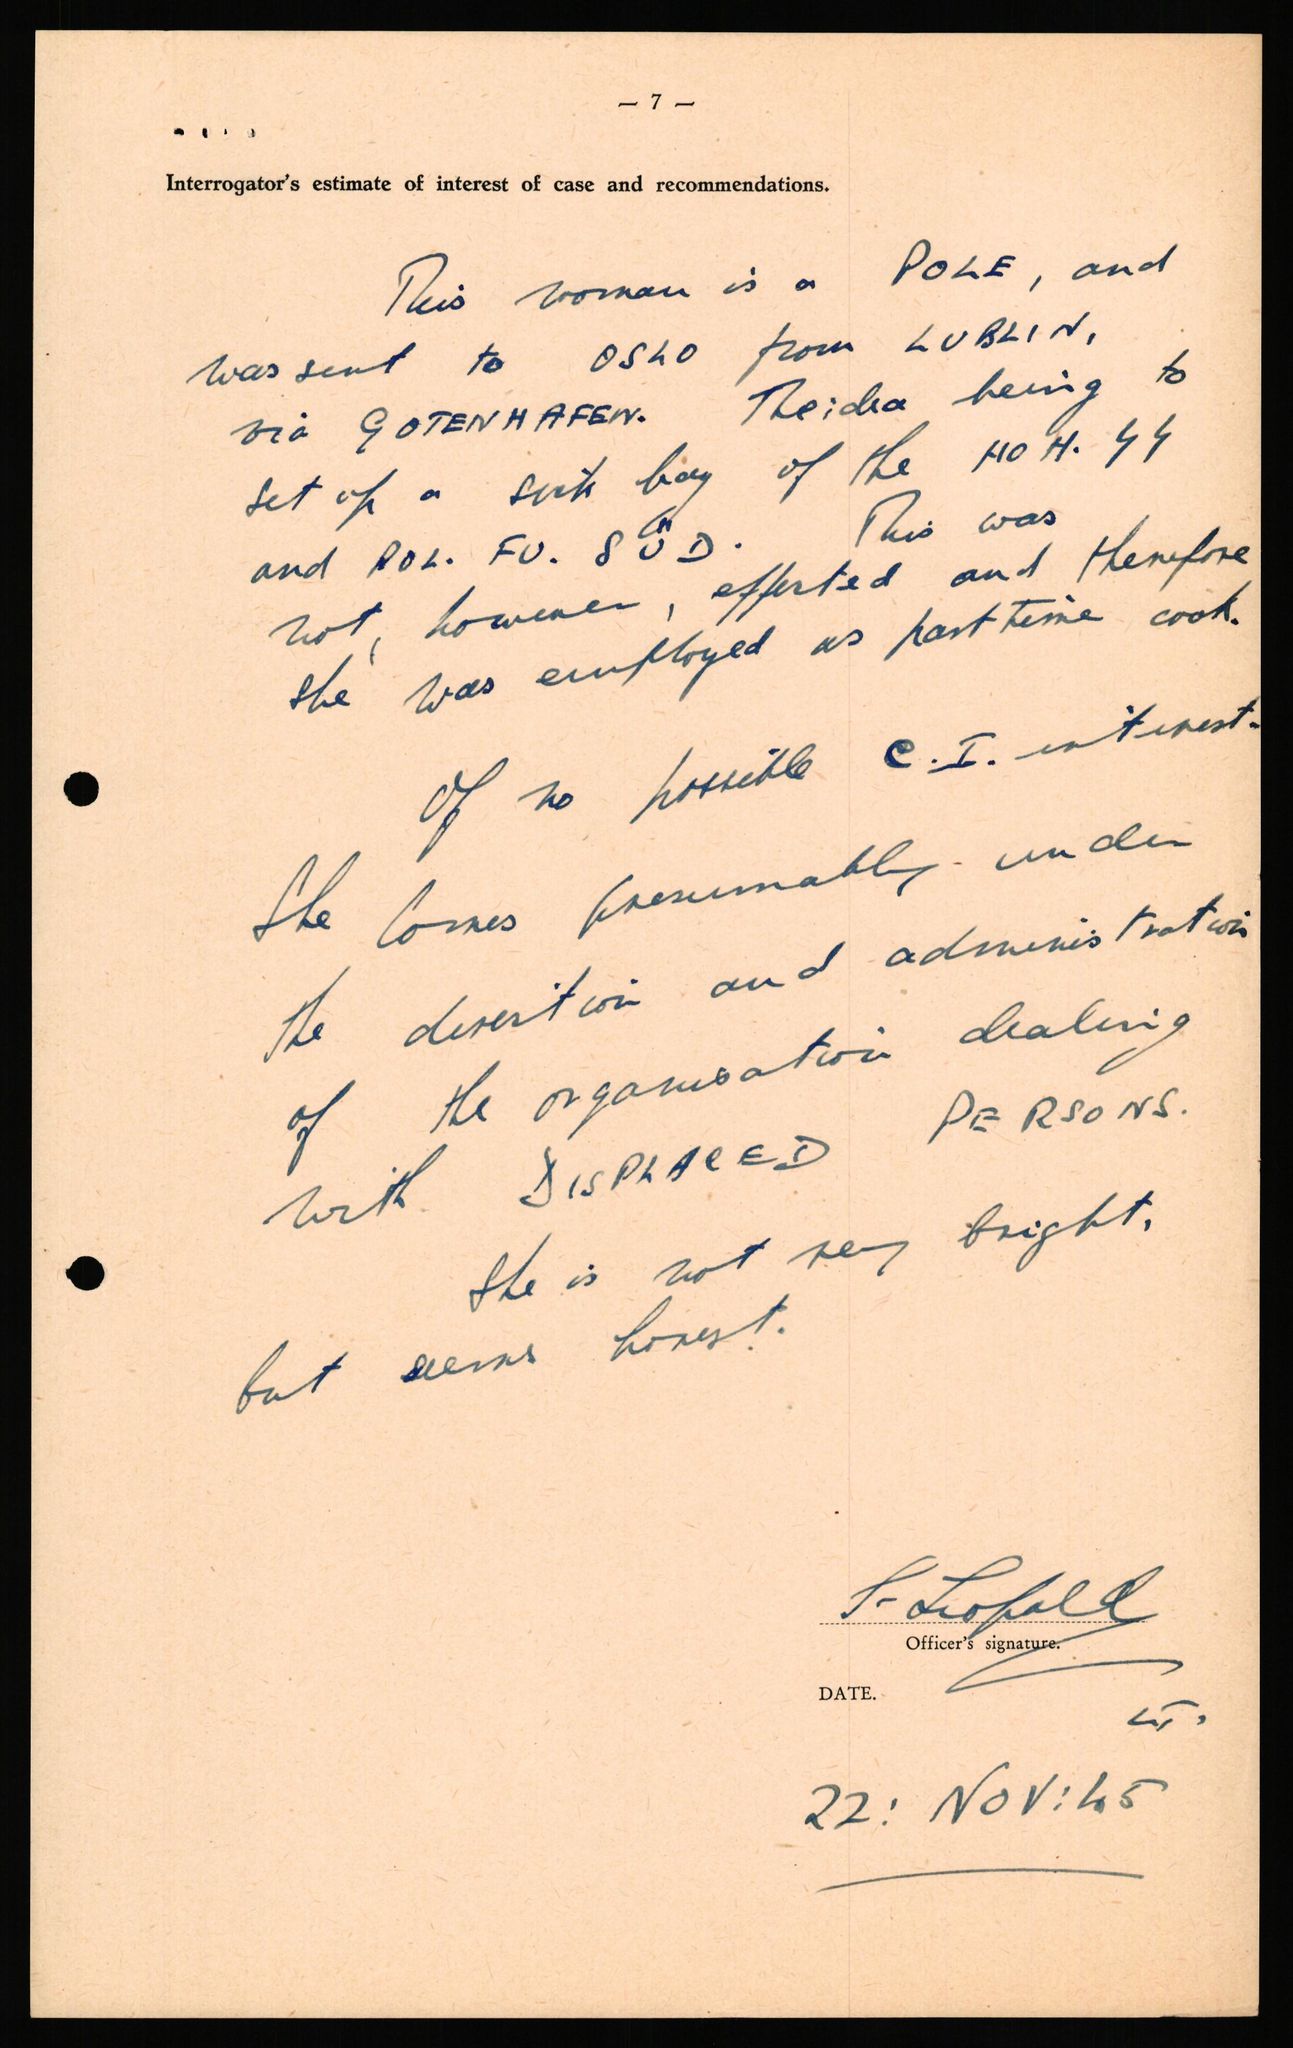 — 7 —
Interrogator's estimate of interest of case and recommendations.
This woman is a POLE, and
was sent to OSLO from LUBLIN,
via GOTENHAFEN. The idea being to
set up a sick bay of the HOH. SS
and POL. FU. SÜD. This was
not, however, effected and therefore
she was employed as part time cook.
Of no possible C.I. interest.
She comes presumably under
the direction and administration
of the organisation dealing
with DISPLACED PERSONS.
She is not very bright,
but seems honest.
Leopold
Officer's signature.
DATE.
LT.
22: NOV: 45